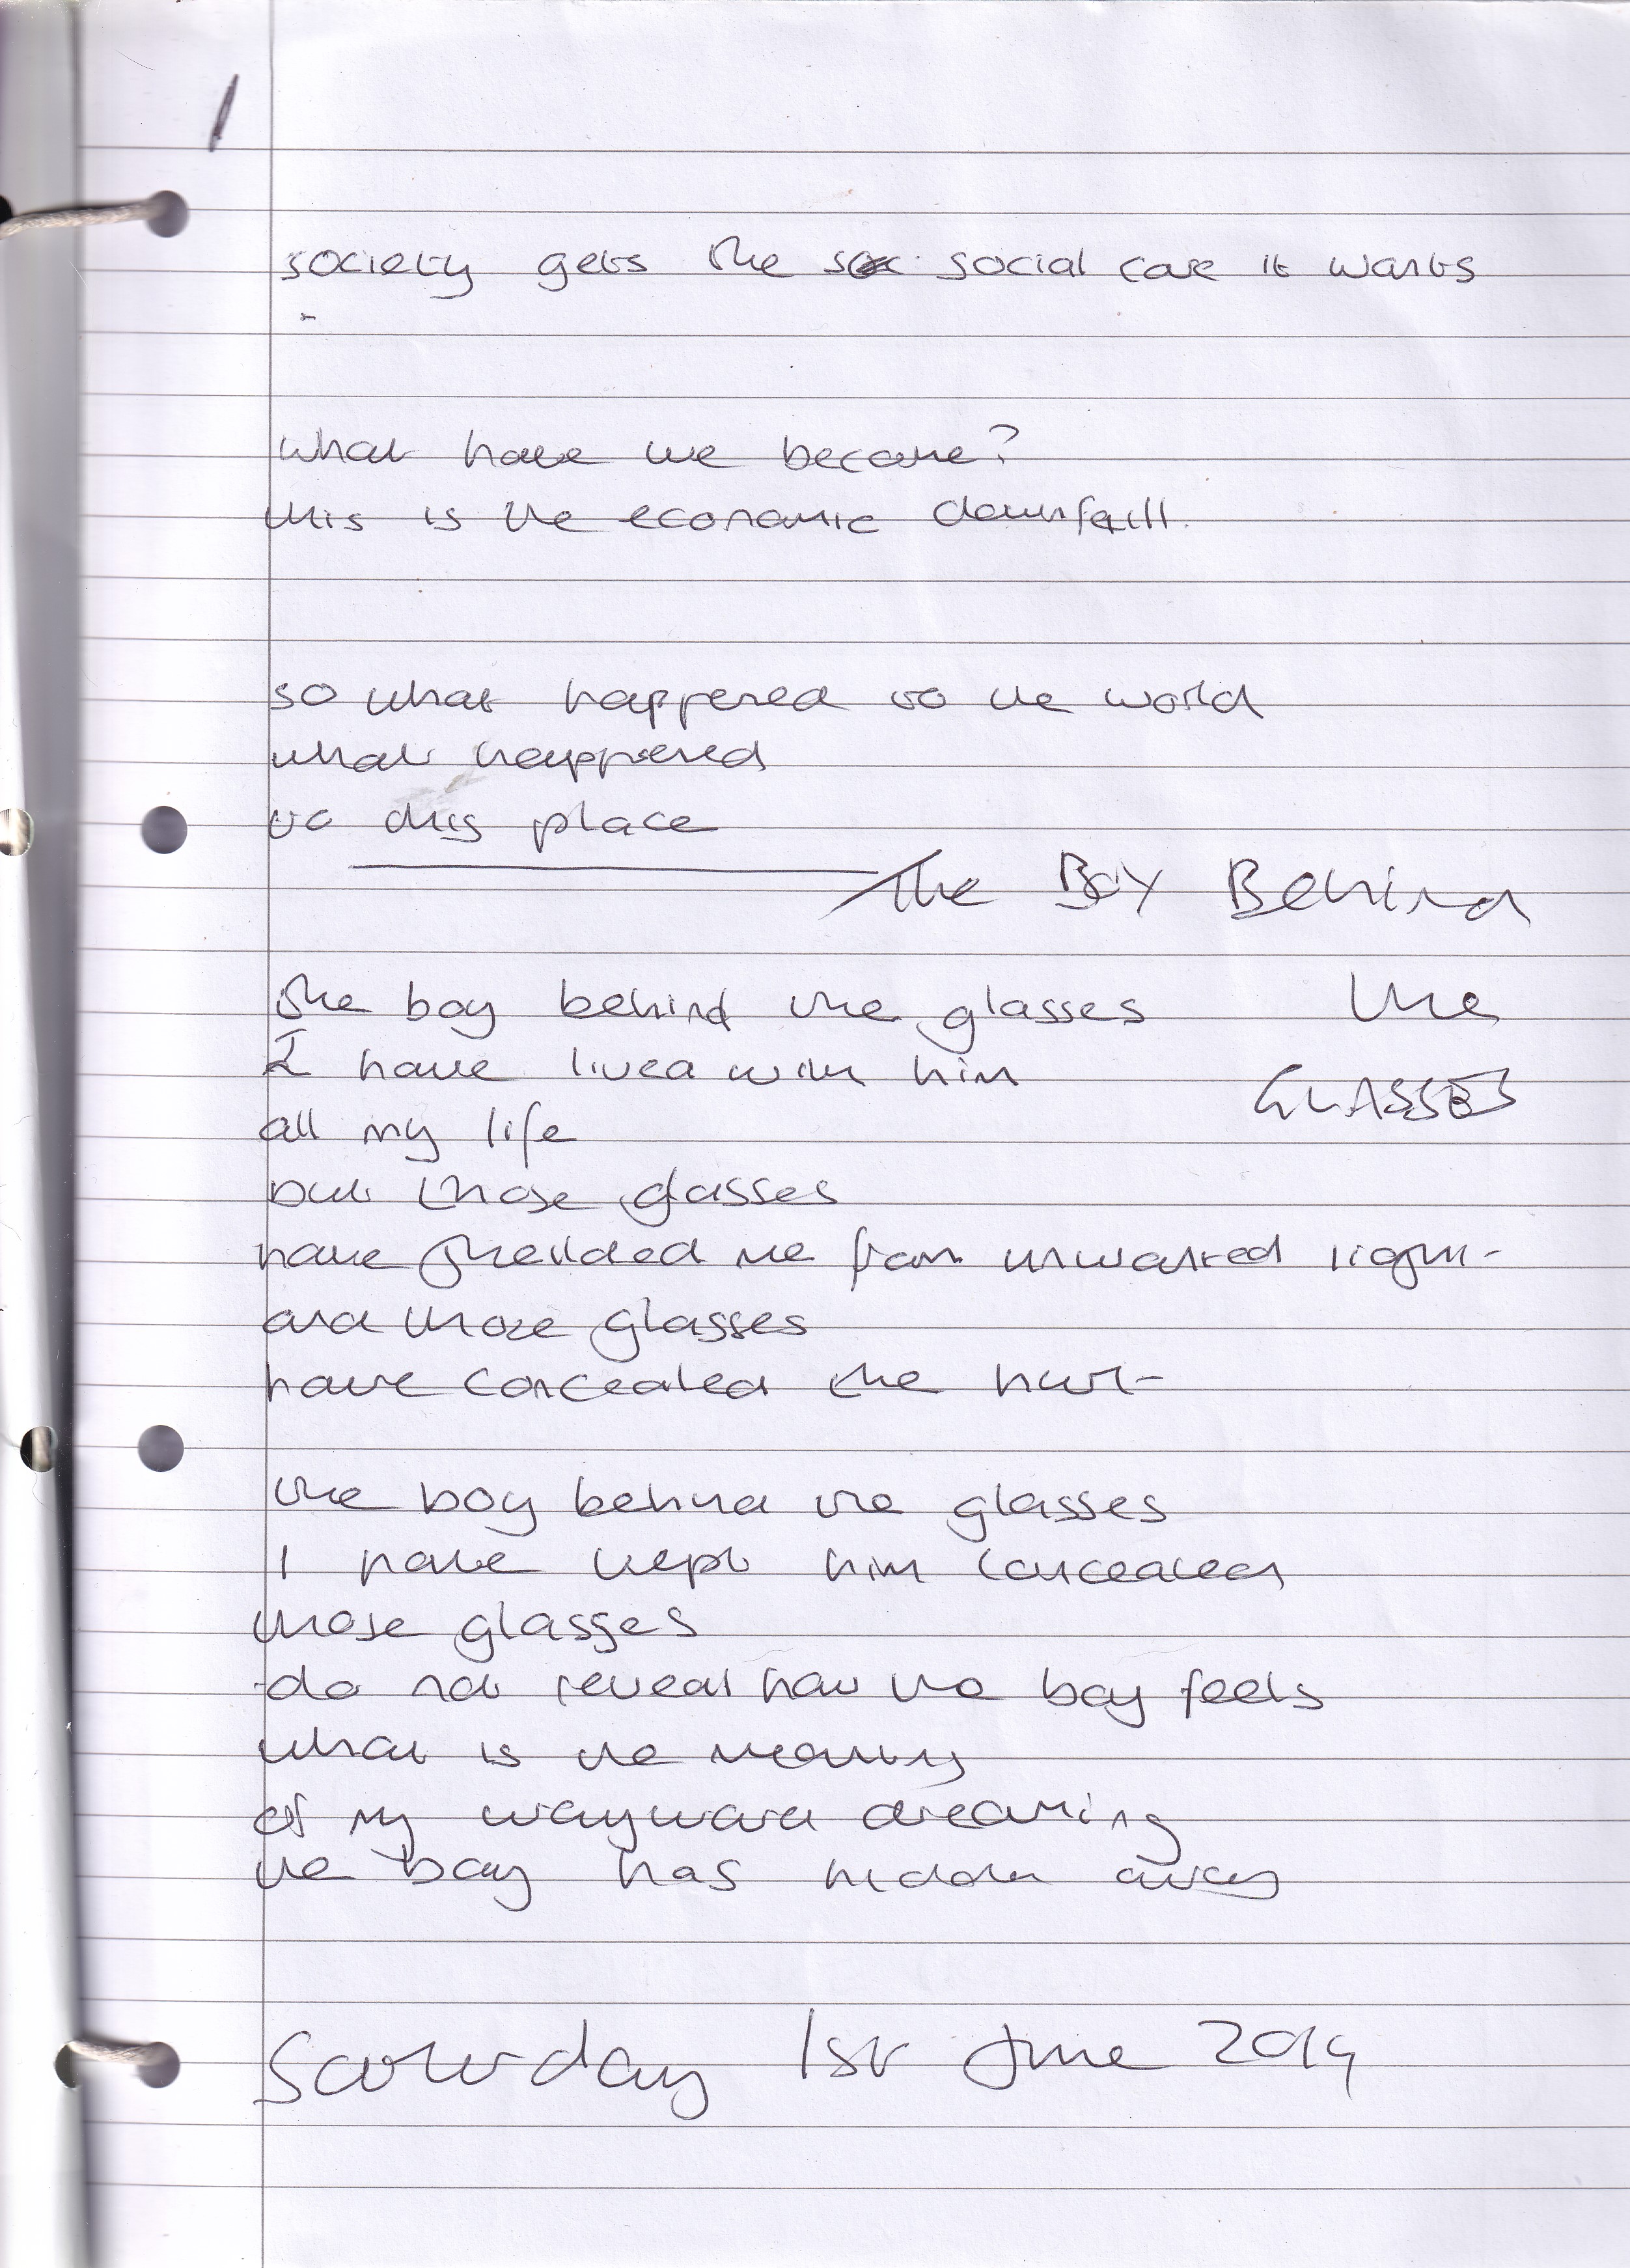 1
society gets the soc social care it wants
what have we become?
this is the economic downfall.
so what happened to the world
what happened
to this place
The Boy Behind
the
GLASSES
The boy behind the glasses
I have lived with him
all my life
but those glasses
have sheilded me from unwanted light
and those glasses
have concealed the hurt
the boy behind the glasses
I have kept him concealed
those glasses
do not reveal how the boy feels
what is the meaning
of my wayward dreaming
the boy has hidden away
Saturday 1st June 2019